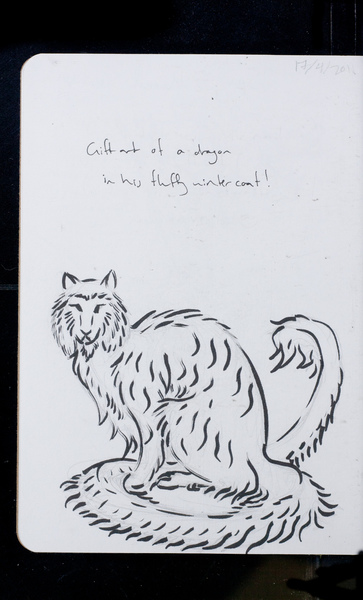 Gift art of a dragon
in his fluffy winter coat!